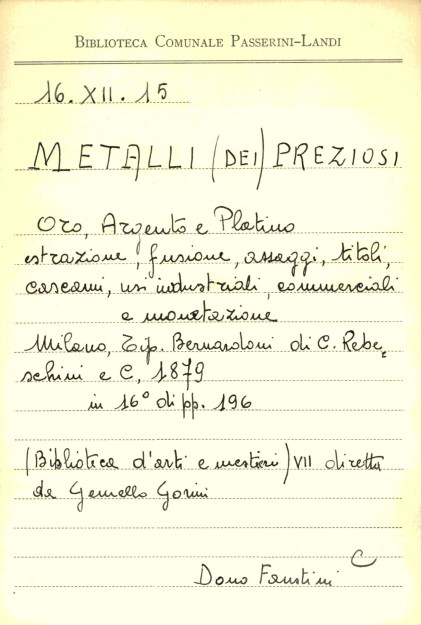 BIBLIOTECA COMUNALE PASSERINI-LANDI
16. XII. 15
METALLI (DEI) PREZIOSI
Oro, Argento e Platino
estrazione, fusione, assaggi, titoli,
cascami, usi industriali, commerciali
e monetazione
Milano, Tip. Bernardoni di C. Rebe=
schini e C, 1879
in 16° di pp. 196
(Biblioteca d'arti e mestieri) VII diretta
da Gemello Gorini
C
Dono Faustini